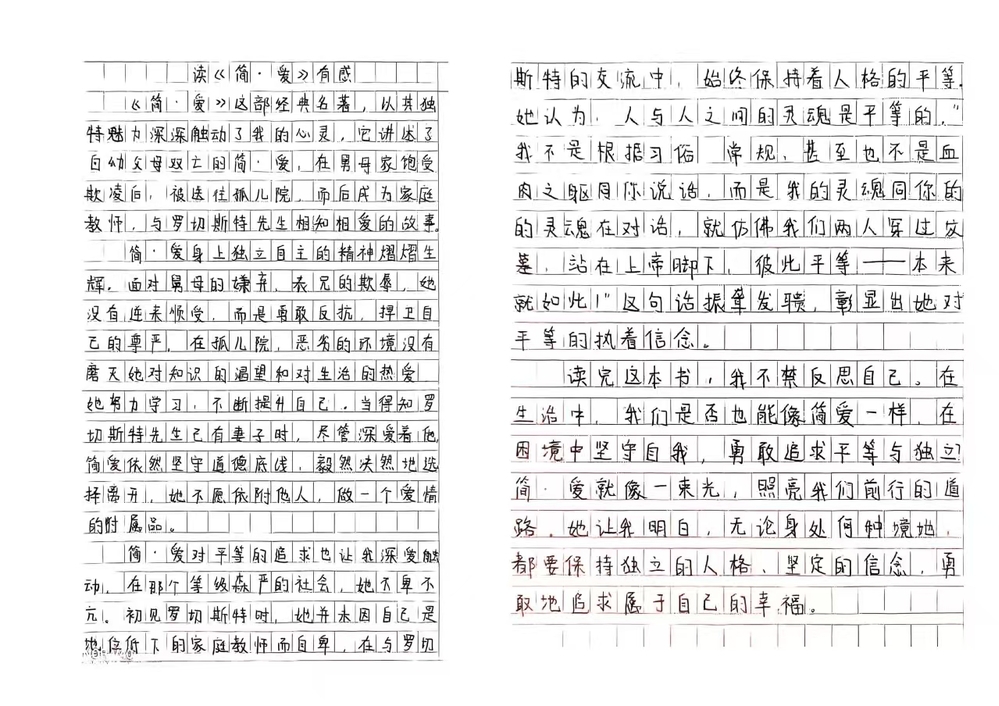 读《简·爱》有感
《简·爱》这部经典名著，以其独
特魅力深深触动了我的心灵，它讲述了
自幼父母双亡的简·爱，在舅母家饱受
欺凌后，被送往孤儿院，而后成为家庭
教师，与罗切斯特先生相知相爱的故事。
简·爱身上独立自主的精神熠熠生
辉。面对舅母的嫌弃、表兄的欺辱，她
没有逆来顺受，而是勇敢反抗，捍卫自
己的尊严，在孤儿院，恶劣的环境没有
磨灭她对知识的渴望和对生活的热爱
她努力学习，不断提升自己，当得知罗
切斯特先生已有妻子时，尽管深爱着他，
简爱依然坚守道德底线，毅然决然地选
择离开，她不愿依附他人，做一个爱情
的附属品。
简·爱对平等的追求也让我深受触
动，在那个等级森严的社会，她不卑不
亢。初见罗切斯特时，她并未因自己是
地位低下的家庭教师而自卑，在与罗切
斯特的交流中，始终保持着人格的平等。
她认为，人与人之间的灵魂是平等的，“
我不是根据习俗 常规，甚至也不是血
肉之躯同你说话，而是我的灵魂同你的
的灵魂在对话，就仿佛我们两人穿过坟
墓，站在上帝脚下，彼此平等——本来
就如此！”这句话振聋发聩，彰显出她对
平等的执着信念。
读完这本书，我不禁反思自己。在
生活中，我们是否也能像简爱一样，在
困境中坚守自我，勇敢追求平等与独立
简·爱就像一束光，照亮我们前行的道
路。她让我明白，无论身处何种境地，
都要保持独立的人格、坚定的信念，勇
敢地追求属于自己的幸福。